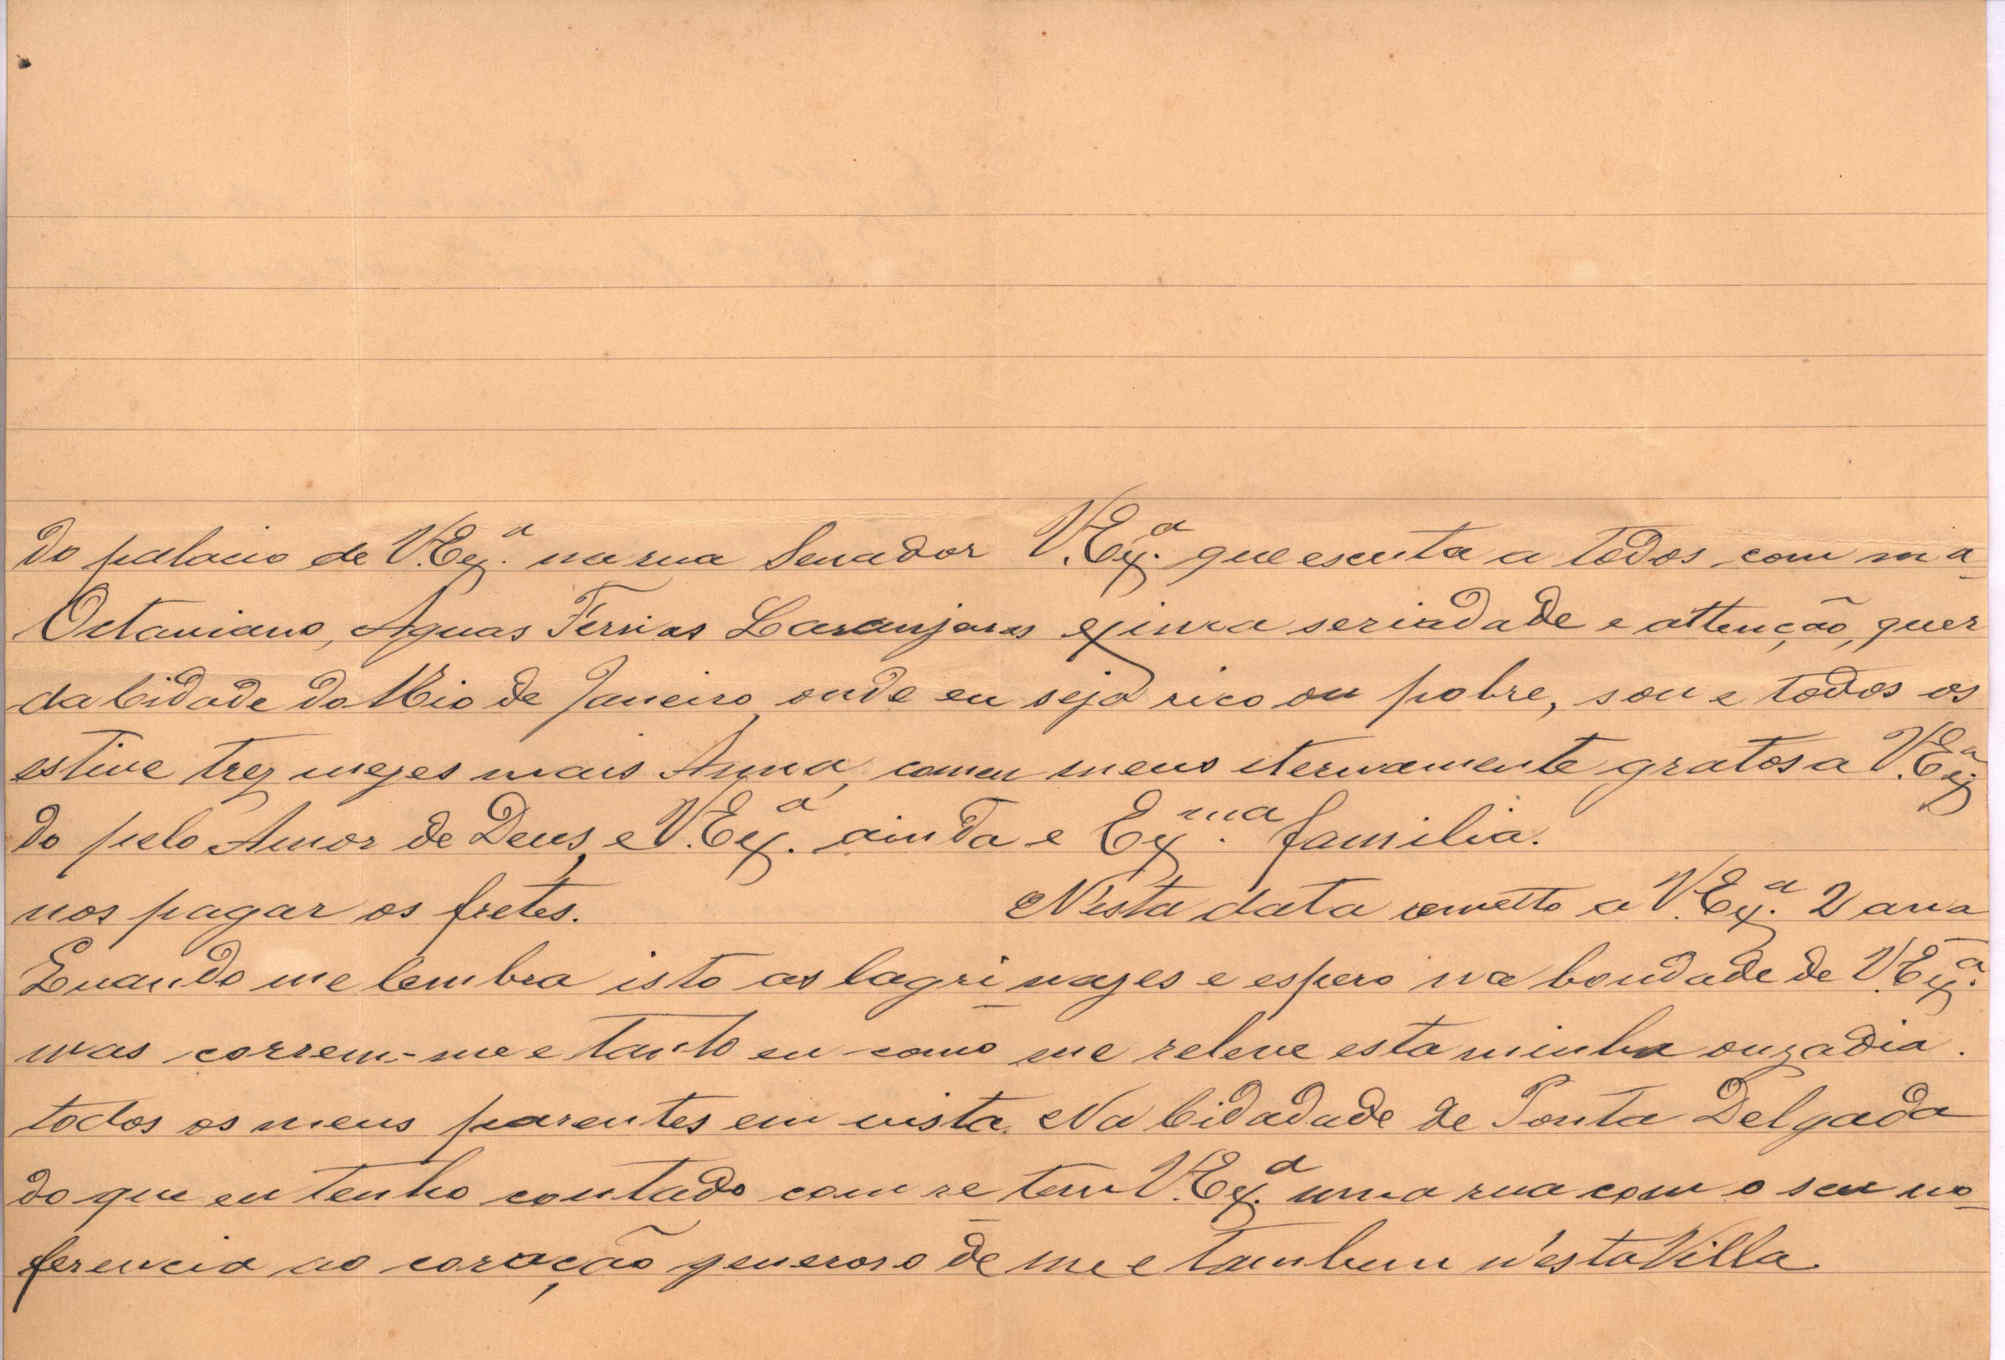 do palacio de V.Ex.ª na rua Senador
Octaviano, Aguas Ferrias Laranjaras
da Cidade do Rio de Janeiro, onde eu
estive trez mezes mais Anna, comen
do pelo Amor de Deus, e V.Ex.ª ainda
nos pagar os fretes.
Quando me lembra isto as lagri-
mas correm-me e tanto eu como
todos os meus parentes em vista
do que eu tenho contado com re-
ferencia ao coração generoso de
V.Ex.ª que escuta a todos com ma-
xima seriadade e attenção, quer
seja rico ou pobre, sou e todos os
meus eternamente gratos a V.Ex.ª
e Ex.ma familia.
Nesta data remetto a V.Ex.ª 2 ana-
nazes e espero na bondade de V.Ex.ª
me releve esta minha ouzadia.
Na Cidadade de Ponta Delgada
tem V.Ex.ª uma rua com o seu no-
me e tambem n'esta Villa.